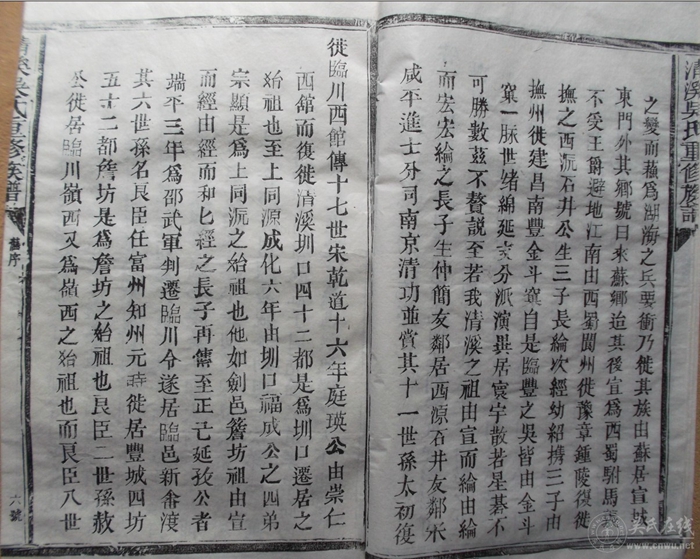 清溪吳氏重修族譜
之變而蘓爲湖海之兵要衝乃徙其族由蘇居宣城
東門外其鄉號曰來蘇鄉迨其後宣爲西蜀駙馬
不受王爵避地江南由西蜀閬州徙豫章鍾陵復徙
撫之西沅石井公生三子長綸次經幼紹携三子由
撫州徙建昌南豐金斗窠自是臨豐之吳皆由金斗
窠一脉世绪綿延支分派演畏居寰宇散若星碁不
可勝數茲不贅説至若我清溪之祖由宣而綸由綸
而宏宏綸之長子生仲簡友鄰居西源石井友鄰宋
咸平進士分司南京清功並賞其十一世孫太初復
徙臨川西館傳十七世宋乾道十六年庭瑛公由崇仁
西舘而復徙清溪圳口四十二都是爲圳口遷居之
始祖也至上同源成化六年由圳口福成公之四弟
宗顯是爲上同沅之始祖也他如劍邑簷坊祖由宣
而經由經而和匕經之長子再傳至正匕延孜公者
端平三年爲邵武軍判遷臨川令遂居臨邑新畬渡
其六世孫名艮臣任富州知州元時徙居豐城四坊
五十二都詹坊是爲詹坊之始祖也艮臣二世孫赦
公徙居臨川嶺西又爲嶺西之始祖也而艮臣八世
清溪吳氏重修族譜
舊序
六號
吴氏在线
www.cnwu.net